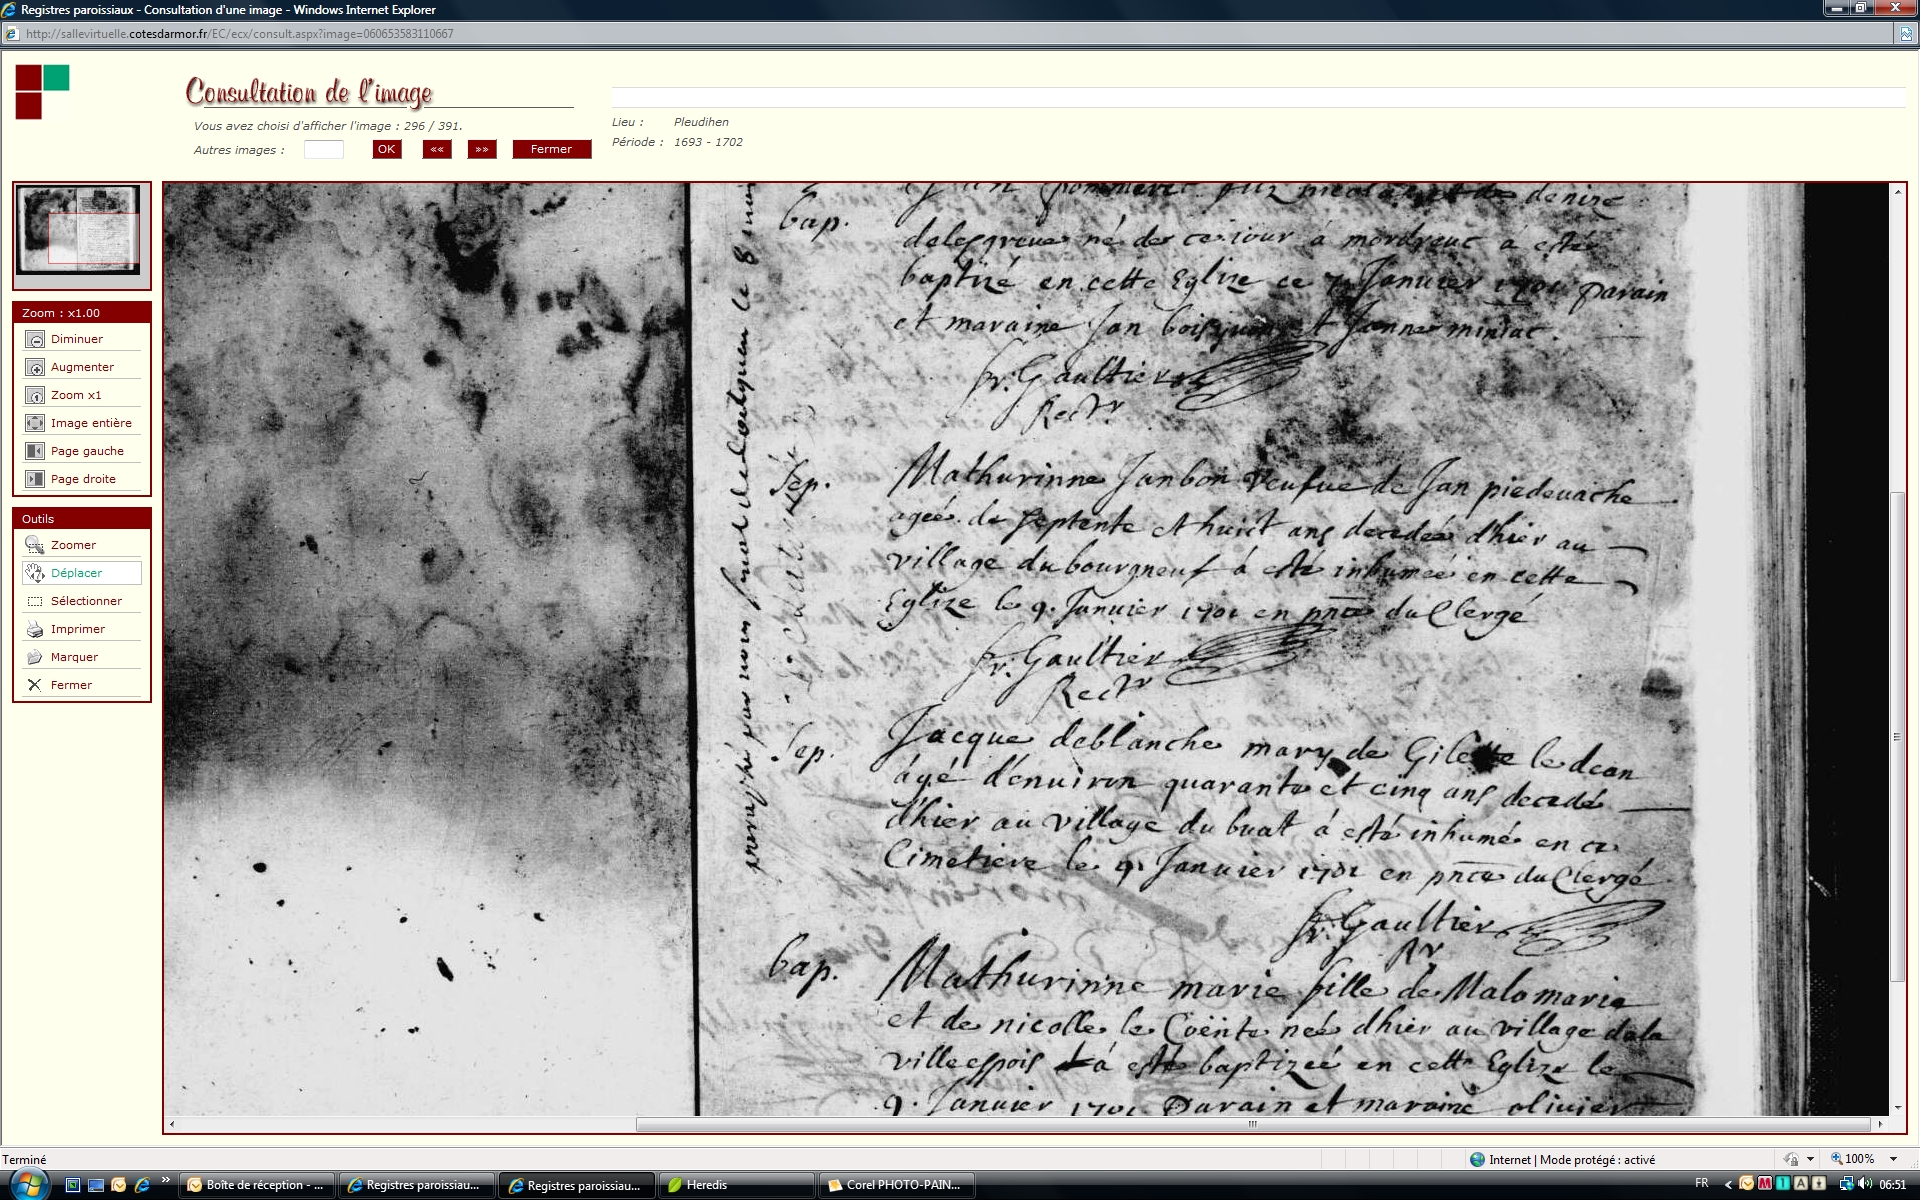 Registres paroissiaux - Consultation d'une image - Windows Internet Explorer
http://sallevirtuelle.cotesdarmor.fr/EC/ecx/consult.aspx?image=060653583110667
Consultation de l'image
Vous avez choisi d'afficher l'image : 296 / 391.
Autres images :
OK
««
»»
Fermer
Lieu : Pleudihen
Période : 1693 - 1702
Zoom : x1.00
Diminuer
Augmenter
Zoom x1
Image entière
Page gauche
Page droite
Outils
Zoomer
Déplacer
Sélectionner
Imprimer
Marquer
Fermer
bap.
denize
né de ce iour à mordreuc à esté
baptizé en cette Eglize ce 7. Januier 1701 parain
et maraine Jan et Janne miniac.
fr. Gaultier
Rectr
Sep.
Mathurinne Janbon veufue de Jan piedeuache
ageé de septente et huict ans decedeé dhier au
village du bourgneuf à esté inhumeé en cette
Eglize le 9. Januier 1701 en pnce du Clergé
fr. Gaultier
Rectr
Sep.
Jacque deblanche mary de Gilette le dean
âgé d'enuiron quarante et cinq ans decedé
d'hier au village du buat à esté inhumé en ce
Cimetiere le 9. Januier 1701 en pnce du Clergé
fr. Gaultier
Rr
bap.
Mathurinne marie fille de Malo marie
et de nicolle le Coënte neé dhier au village dela
ville espois à esté baptizeé en cette Eglize le
9. Januier 1701 Parain et maraine oliuier
Terminé
Internet | Mode protégé : activé
100%
Boîte de réception - ...
Registres paroissiau...
Registres paroissiau...
Heredis
Corel PHOTO-PAIN...
FR
06:51